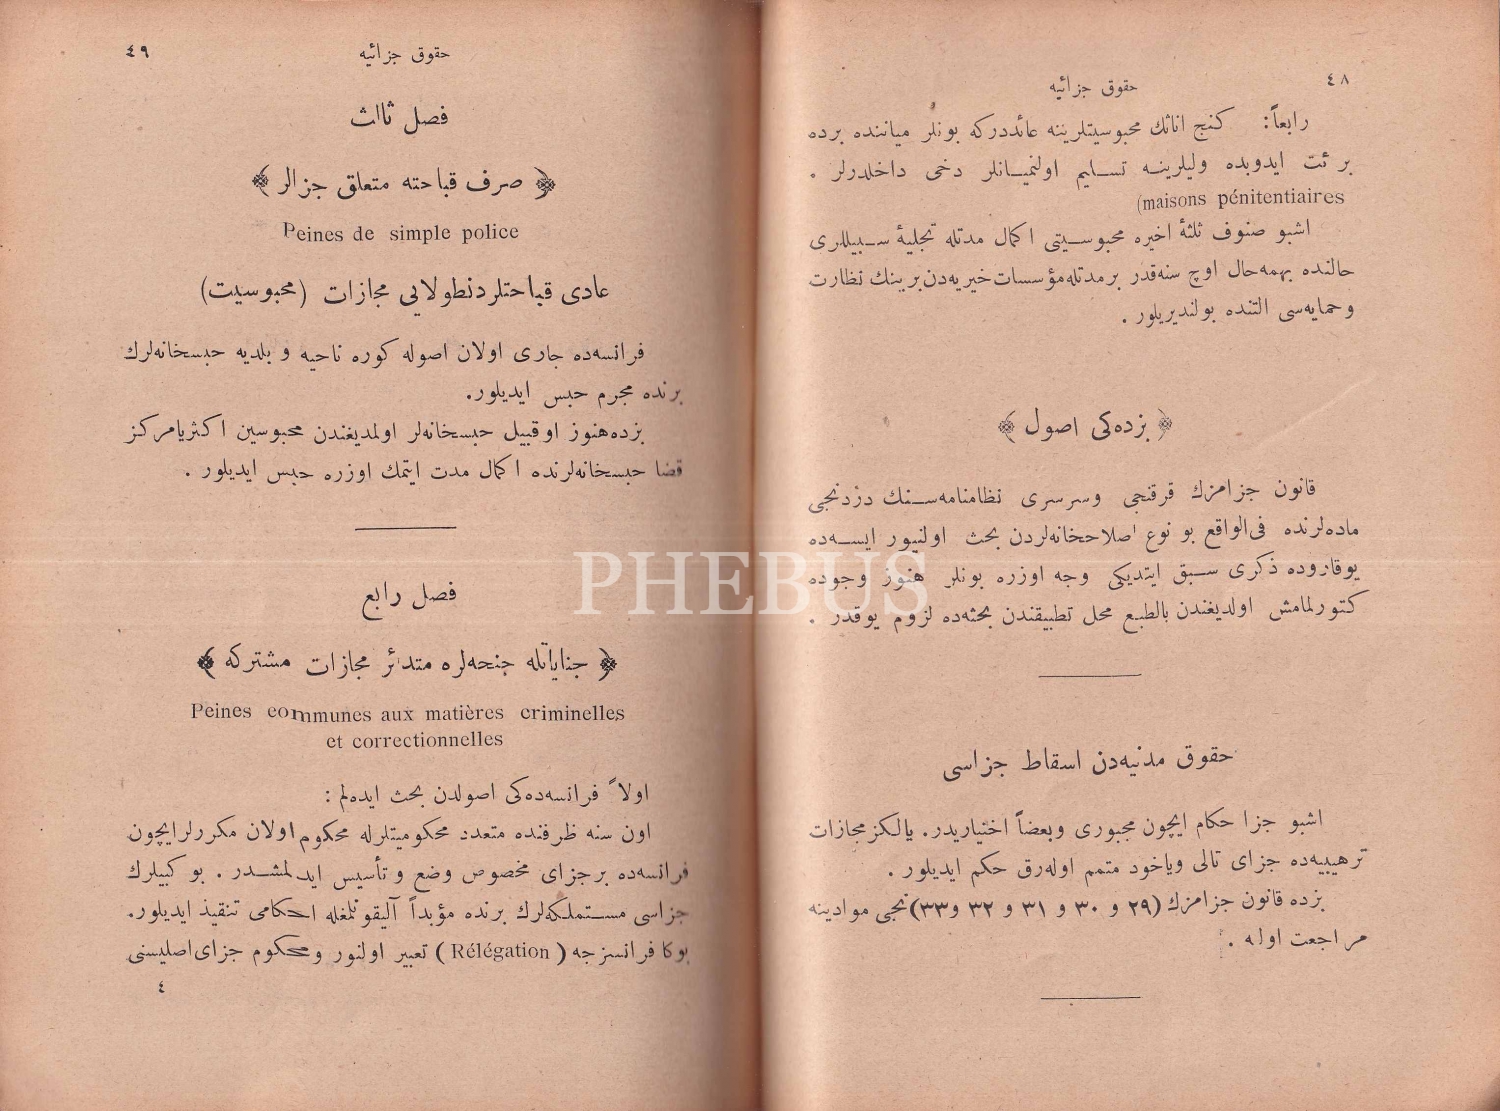 ٤٨
حقوق جزائیه
رابعاً: کنج اناثك محبوسیتلرینه عائددرکه بونلر میاننده برده
برئت ایدوبده ولیلرینه تسلیم اولنمیانلر دخی داخلدرلر .
(maisons pénitentiaires
اشبو صنوف ثلثهٔ اخیره محبوسیتی اکمال مدتله تخلیهٔ سبیللری
حالنده بهمه‌حال اوچ سنه‌قدر برمدتله مؤسسات خیریه‌دن برینك نظارت
وحمایه‌سی التنده بولندیریلور .
﴿ بزده‌کی اصول ﴾
قانون جزامزك قرقنجی وسرسری نظامنامه‌سنك دردنجی
ماده‌لرنده فی‌الواقع بو نوع اصلاحخانه‌لردن بحث اولنیور ایسه‌ده
یوقاروده ذکری سبق ایتدیکی وجه اوزره بونلر هنوز وجوده
کتورلمامش اولدیغندن بالطبع محل تطبیقندن بحثه‌ده لزوم یوقدر .
حقوق مدنیه‌دن اسقاط جزاسی
اشبو جزا حکام ایچون مجبوری وبعضاً اختیاریدر. یالکز مجازات
ترهیبیه‌ده جزای تالی ویاخود متمم اوله‌رق حکم ایدیلور .
بزده قانون جزامزك (٢٩ و ٣٠ و ٣١ و ٣٢ و٣٣) نجی موادینه
مراجعت اوله .
حقوق جزائیه
٤٩
فصل ثالث
﴿ صرف قباحته متعلق جزالر ﴾
Peines de simple police
عادی قباحتلردنطولایی مجازات (محبوسیت)
فرانسه‌ده جاری اولان اصوله کوره ناحیه و بلدیه حبسخانه‌لرك
برنده مجرم حبس ایدیلور.
بزده‌هنوز اوقبیل حبسخانه‌لر اولمدیغندن محبوسین اکثریا مرکز
قضا حبسخانه‌لرنده اکمال مدت ایتمك اوزره حبس ایدیلور .
فصل رابع
﴿ جنایاتله جنحه‌لره متدائر مجازات مشترکه ﴾
Peines communes aux matières criminelles
et correctionnelles
اولاً فرانسه‌ده‌کی اصولدن بحث ایده‌لم :
اون سنه ظرفنده متعدد محکومیتلرله محکوم اولان مکررلرایچون
فرانسه‌ده برجزای مخصوص وضع و تأسیس ایدلمشدر . بو کبیلرك
جزاسی مستملکه‌لرك برنده مؤبداً آلیقونلمغله احکامی تنفیذ ایدیلور.
بوکا فرانسزجه (Rélégation) تعبیر اولنور ومحکوم جزای‌اصلیسنی
٤
PHEBUS